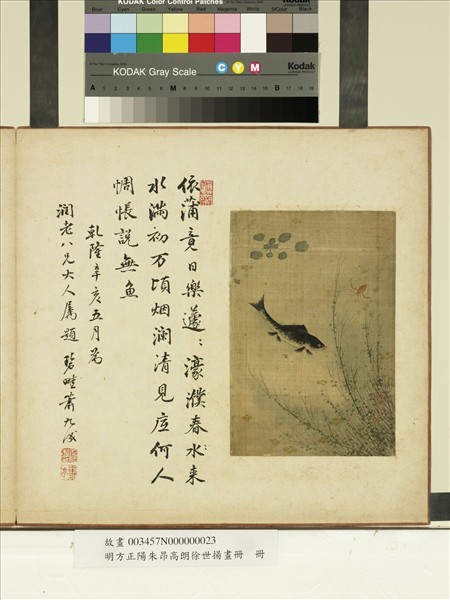 KODAK Color Control Patches
Blue Cyan Green Yellow Red Magenta White 3/Color Black
KODAK Gray Scale
C Y M
Kodak
A 1 2 3 4 5 6 M 8 9 10 11 12 13 14 15 B 17 18 19
依蒲竟日樂蘧〻濠濮春水来
水滿初万頃烟瀾清見底何人
惆悵說無魚
乾隆辛亥五月為
润老八兄大人属題 碧畦蕭九成
故畫 003457N000000023
明方正陽朱昂高朗徐世揚畫冊 冊